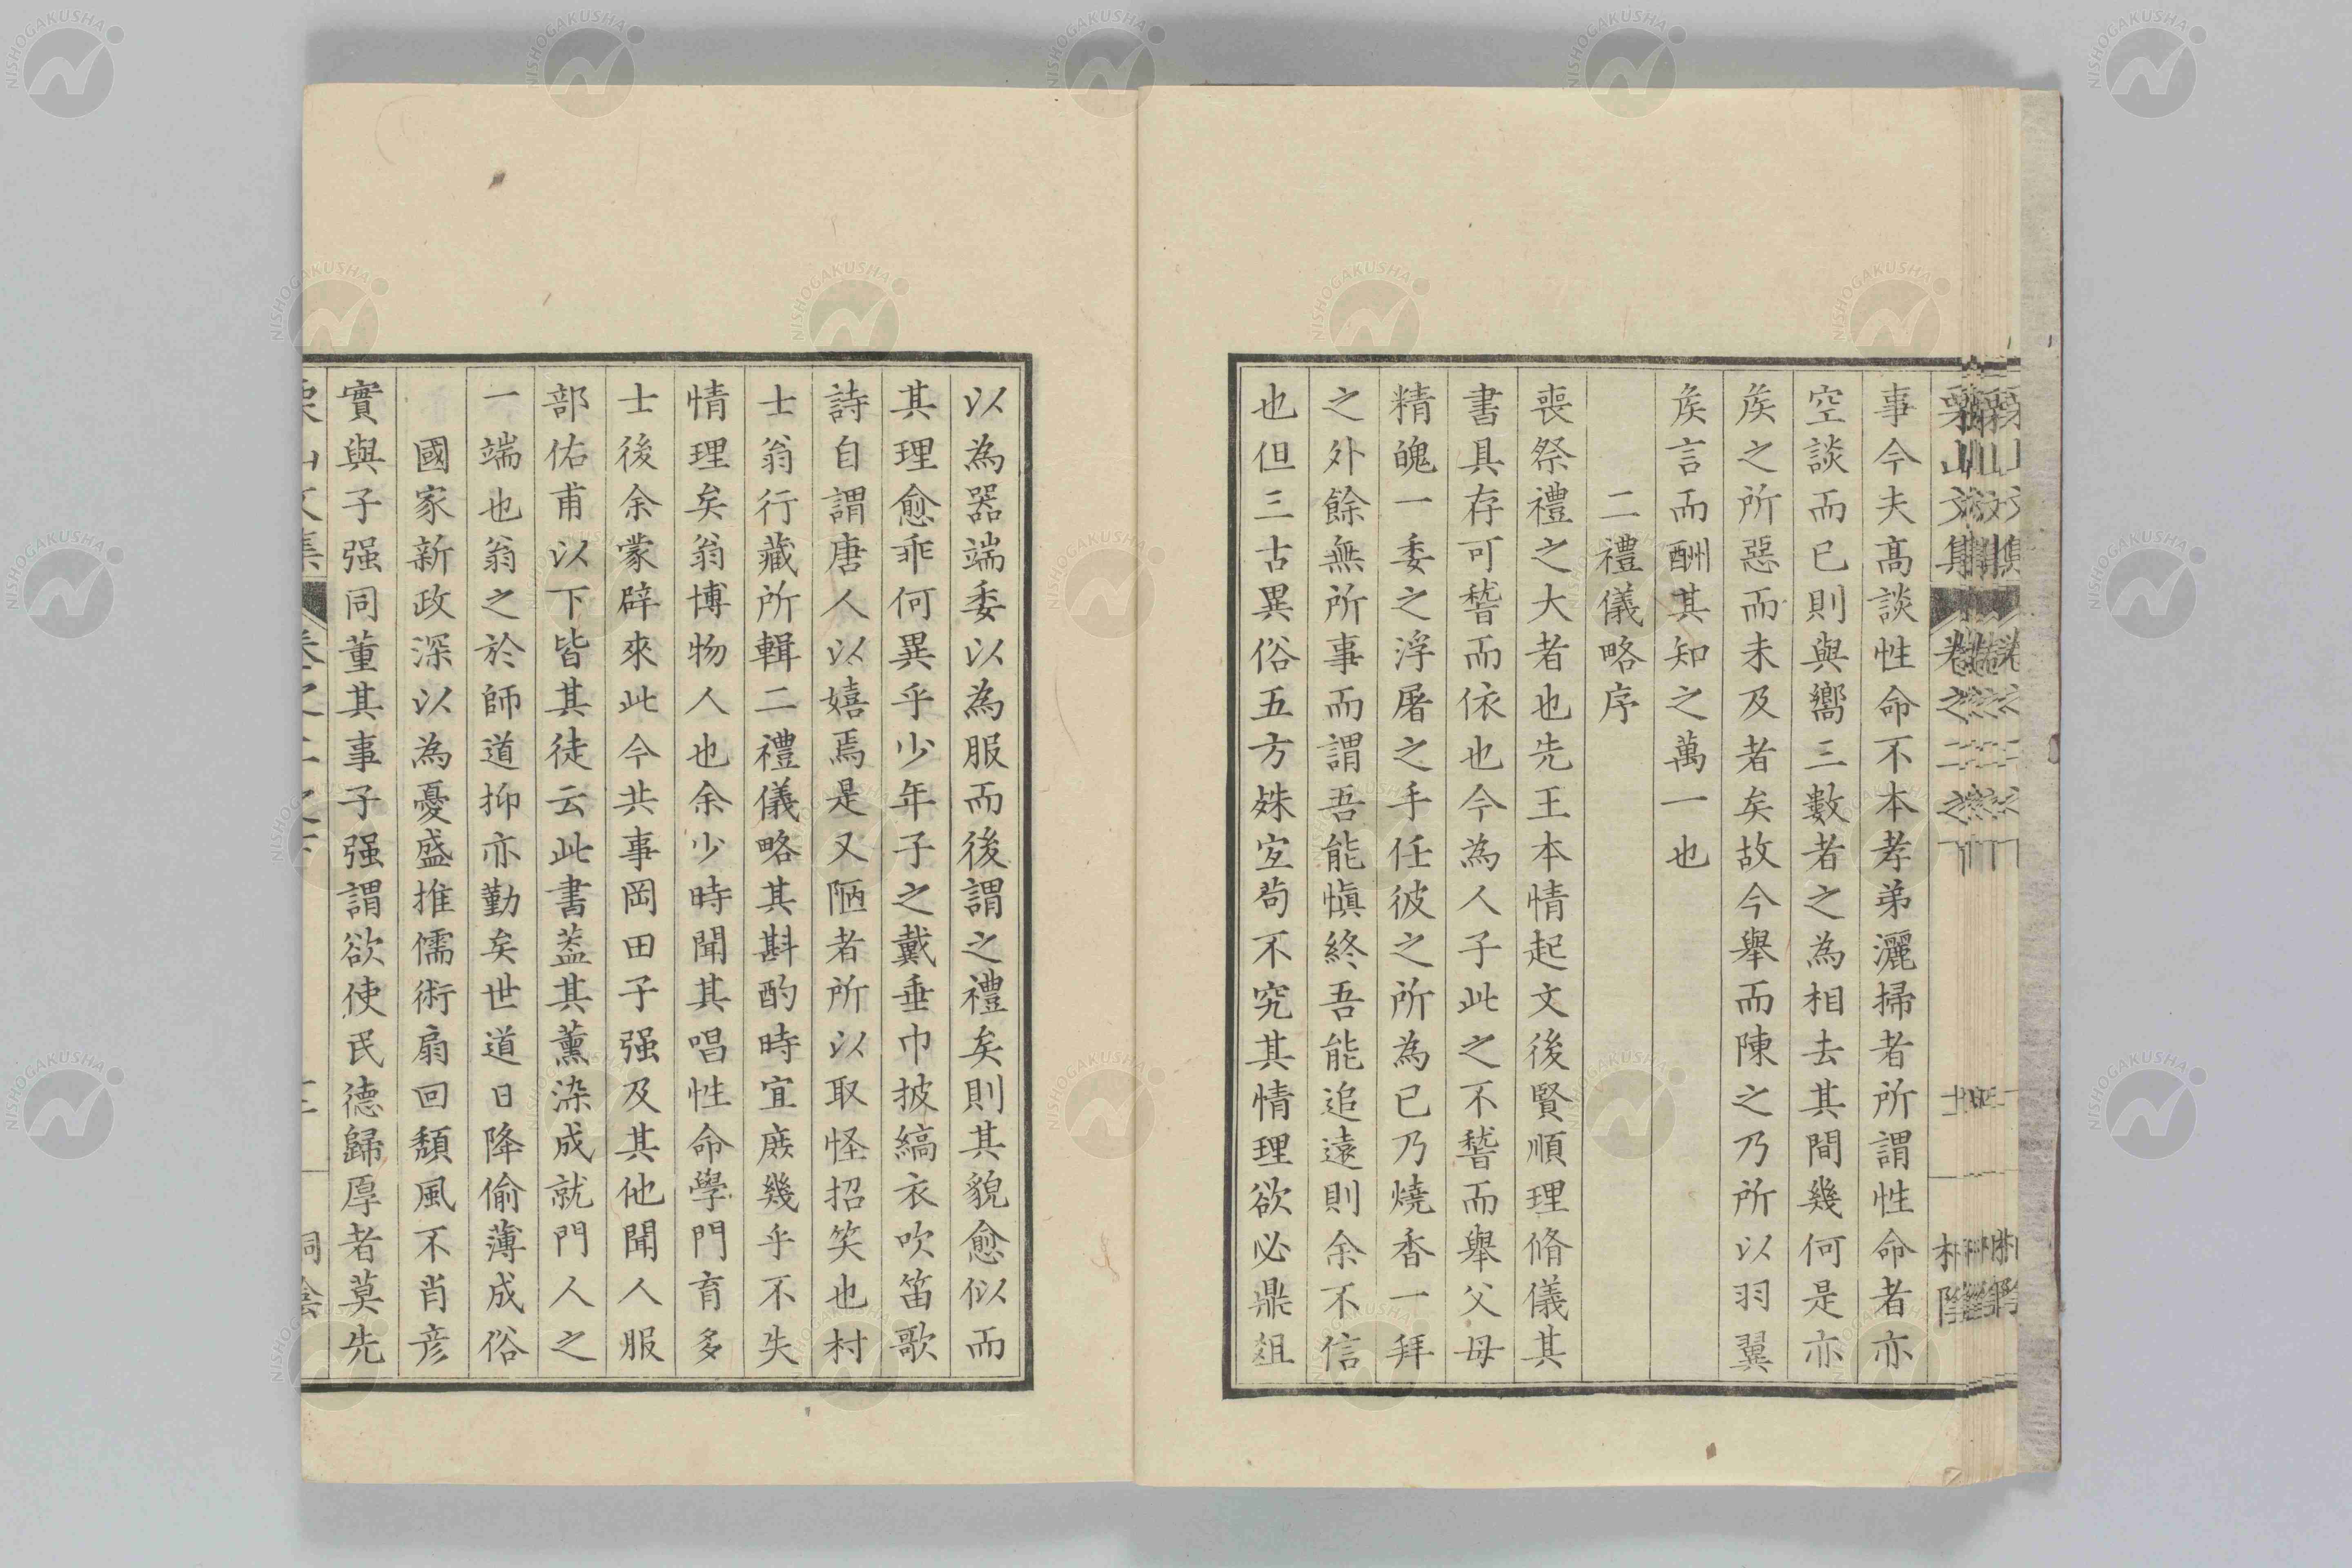 事今夫髙談性命不本孝弟灑掃者所謂性命者亦
空談而已則與嚮三數者之為相去其間幾何是亦
矦之所惡而未及者矣故今舉而陳之乃所以羽翼
矦言而酬其知之萬一也
二禮儀略序
喪祭禮之大者也先王本情起文後賢順理脩儀其
書具存可誊而依也今為人子此之不誊而舉父母
精魄一委之浮屠之手任彼之所為已乃燒香一拜
之外餘無所事而謂吾能愼終吾能追遠則余不信
也但三古異俗五方姝宜茍不究其情理欲必鼎俎
以為器端委以為服而後謂之禮矣則其貌愈似而
其理愈乖何異乎少年子之戴垂巾披縞衣吹笛歌
詩自謂唐人以嬉焉是又陋者所以取怪招笑也村
士翁行藏所輯二禮儀略其斟酌時宜庶幾乎不失
情理矣翁博物人也余少時聞其唱性命學門育多
士後余蒙辟來此今共事岡田子强及其他聞人服
部佑甫以下皆其徒云此書葢其薰染成就門人之
一端也翁之於師道抑亦勤矣世道日降偷薄成俗
國家新政深以為憂盛推儒術扇回頹風不肖彦
實與子强同董其事子强謂欲使民德歸厚者莫先